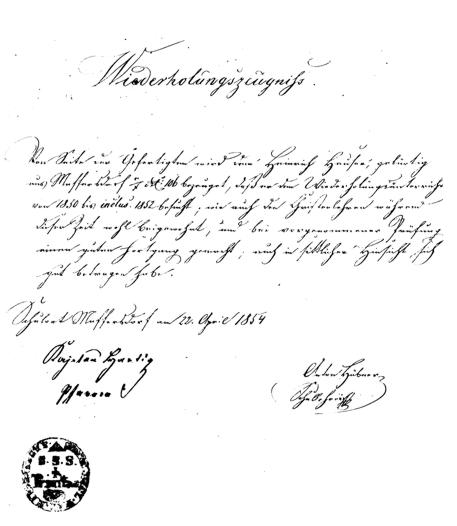 Wiederholungszeugniß.
Von Seite der Gefertigten wird dem Heinrich Hauser, gebürtig
aus Maffersdorf No. 106 bezeuget, daß er den Wiederholungsunterricht
von 1850 bis inclus. 1852 besucht, wie auch die Christenlehren während
dieser Zeit wohl beigewohnt, und bei vorgenommener Prüfung
einen guten Fortgang gemacht; auch in sittlicher Hinsicht sich
gut betragen habe.
Schulort Maffersdorf am 22. April 1854
Kajetan Hartig
Pfarrer
Anton Hübner
S.S.S.